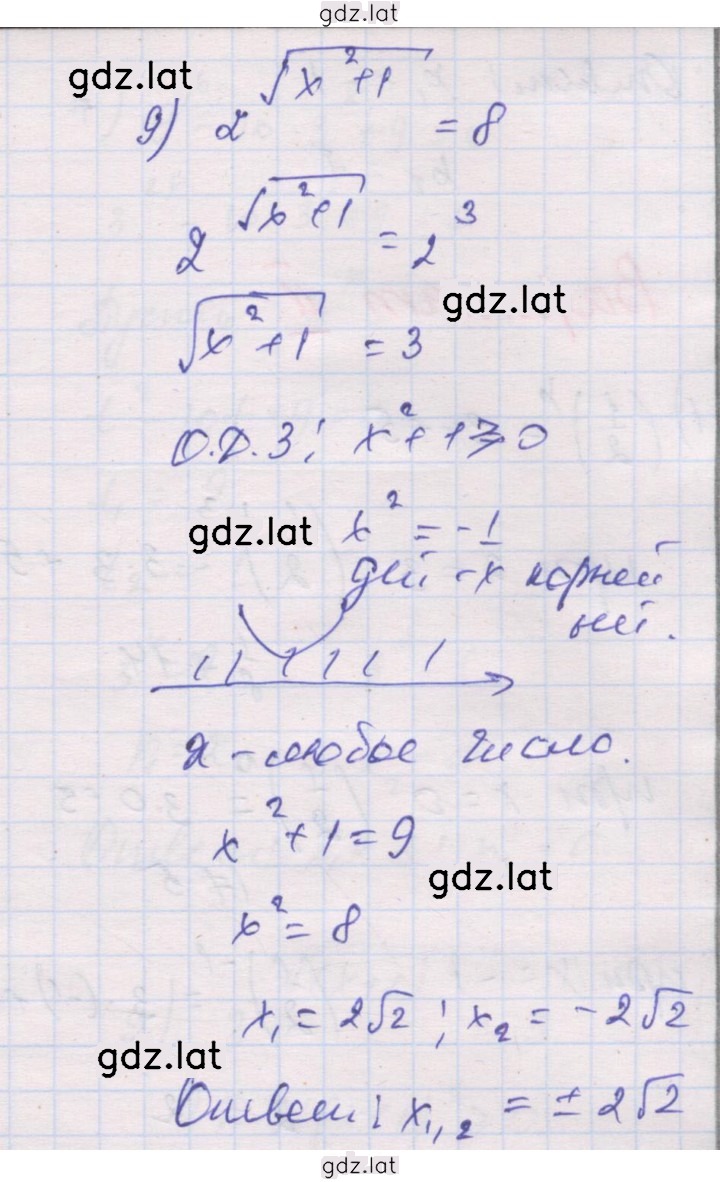 gdz.lat
gdz.lat
9) 2^√(x²+1) = 8
2^√(x²+1) = 2³
gdz.lat
√(x²+1) = 3
О.Д.З: x²+1≥0
gdz.lat
x² = -1
дей -х корней
нет.
x - любое число.
x²+1=9
gdz.lat
x² = 8
x₁ = 2√2 ; x₂ = -2√2
gdz.lat
Ответ: x₁,₂ = ± 2√2
gdz.lat